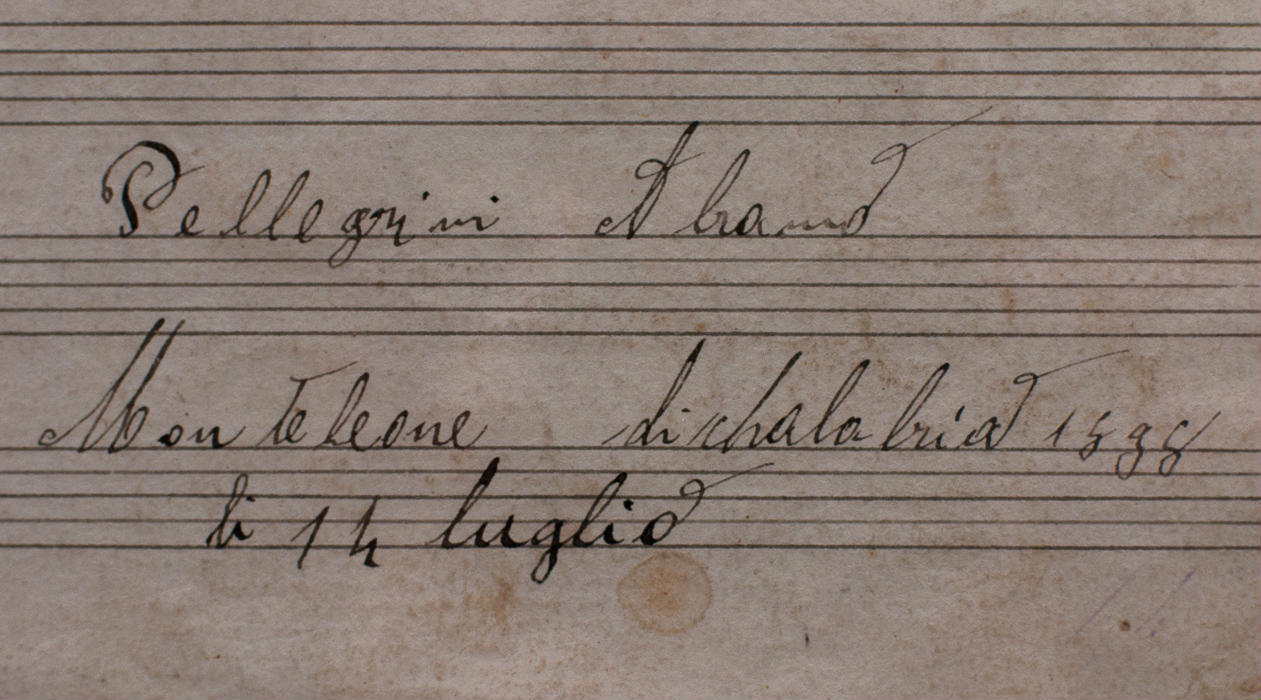 Pellegrini Abramo
Monteleone di chalabria 1898
li 14 luglio